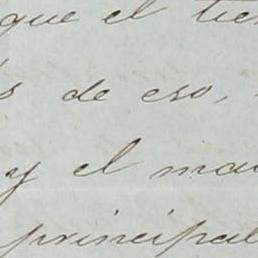 que el tie
s de eso,
y el ma
principal